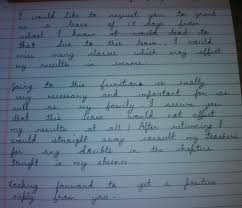 I would like to request you to grant
us a leave of 12 days from
school I know it would lead to
that due to this leave, I would
miss many classes which may affect
my results in exams.
Going to this functions is really
very necessary and important for us
well as my family I assure you
that this leave would not affect
my results at all! After returning I
would straight away consult my teachers
for any doubts in the chapters
taught in my absence
Looking forward to get a positive
reply from you.